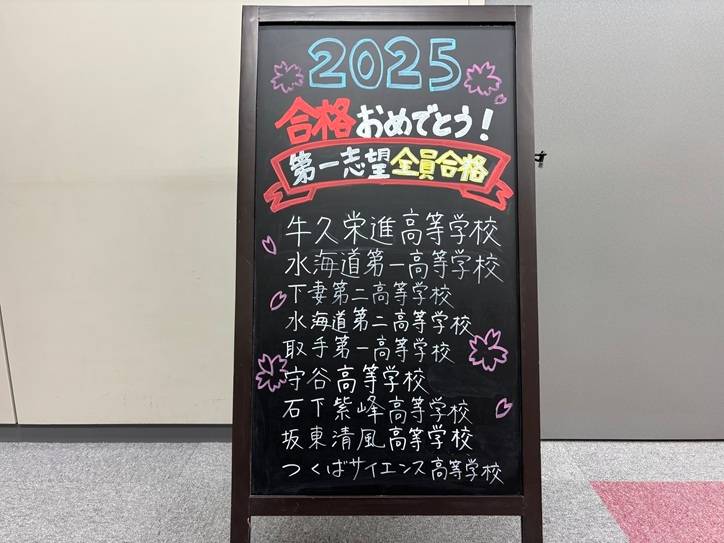 2025
合格おめでとう!
第一志望全員合格
牛久栄進高等学校
水海道第一高等学校
下妻第二高等学校
水海道第二高等学校
取手第一高等学校
守谷高等学校
石下紫峰高等学校
坂東清風高等学校
つくばサイエンス高等学校